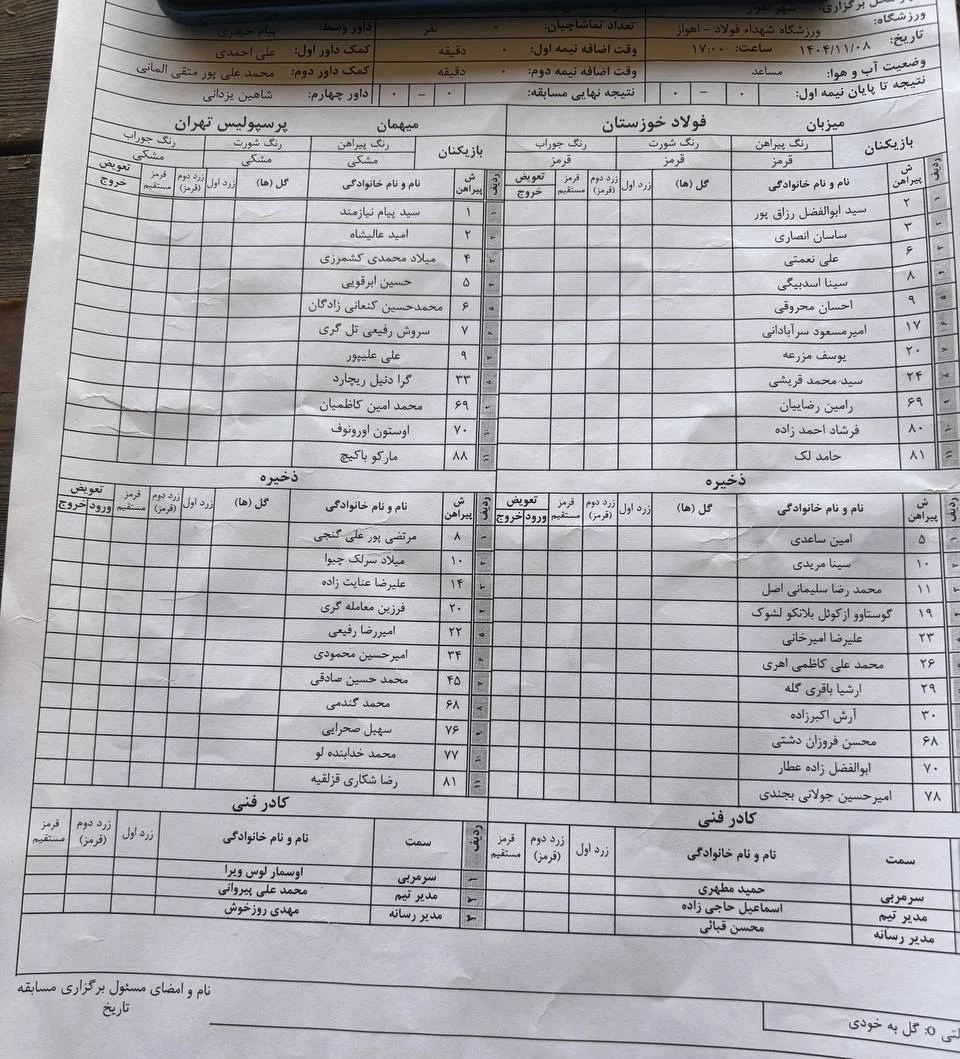 محل برگزاری: شهر اهواز
ورزشگاه: ورزشگاه شهداء فولاد - اهواز تعداد تماشاچیان: ۰ نفر داور وسط: پیام حیدری
تاریخ: ۱۴۰۴/۱۱/۰۸ ساعت: ۱۷:۰۰ وقت اضافه نیمه اول: ۰ دقیقه کمک داور اول: علی احمدی
وضعیت آب و هوا: مساعد وقت اضافه نیمه دوم: ۰ دقیقه کمک داور دوم: محمد علی پور متقی المانی
نتیجه تا پایان نیمه اول: ۰ – ۰ نتیجه نهایی مسابقه: ۰ – ۰ داور چهارم: شاهین یزدانی
میزبان فولاد خوزستان
بازیکنان رنگ پیراهن رنگ شورت رنگ جوراب
قرمز قرمز قرمز
ردیف ش پیراهن نام و نام خانوادگی گل (ها) زرد اول زرد دوم (قرمز) قرمز مستقیم تعویض خروج
۱ ۲ سید ابوالفضل رزاق پور
۲ ۳ ساسان انصاری
۳ ۶ علی نعمتی
۴ ۸ سینا اسدبیگی
۵ ۹ احسان محروقی
۶ ۱۷ امیرمسعود سرآبادانی
۷ ۲۰ یوسف مزرعه
۸ ۲۴ سید محمد قریشی
۹ ۶۹ رامین رضاییان
۱۰ ۸۰ فرشاد احمد زاده
۱۱ ۸۱ حامد لک
ذخیره
ردیف ش پیراهن نام و نام خانوادگی گل (ها) زرد اول زرد دوم (قرمز) قرمز مستقیم تعویض ورود خروج
۱ ۵ امین ساعدی
۲ ۱۰ سینا مریدی
۳ ۱۱ محمد رضا سلیمانی اصل
۴ ۱۹ گوستاوو ازکوئل بلانکو لشوک
۵ ۲۳ علیرضا امیرخانی
۶ ۲۶ محمد علی کاظمی اهری
۲۹ ارشیا باقری گله
۳۰ آرش اکبرزاده
۶۸ محسن فروزان دشتی
۷۰ ابوالفضل زاده عطار
۷۸ امیرحسین جولانی بجندی
کادر فنی
سمت نام و نام خانوادگی زرد اول زرد دوم (قرمز) قرمز مستقیم
سرمربی حمید مطهری
مدیر تیم اسماعیل حاجی زاده
مدیر رسانه محسن قبائی
میهمان پرسپولیس تهران
بازیکنان رنگ پیراهن رنگ شورت رنگ جوراب
مشکی مشکی مشکی
ردیف ش پیراهن نام و نام خانوادگی گل (ها) زرد اول زرد دوم (قرمز) قرمز مستقیم تعویض خروج
۱ ۱ سید پیام نیازمند
۲ ۲ امید عالیشاه
۳ ۴ میلاد محمدی کشمرزی
۴ ۵ حسین ابرقویی
۵ ۶ محمدحسین کنعانی زادگان
۶ ۷ سروش رفیعی تل گری
۷ ۹ علی علیپور
۸ ۳۳ گرا دنیل ریچارد
۹ ۶۹ محمد امین کاظمیان
۱۰ ۷۰ اوستون اورونوف
۱۱ ۸۸ مارکو باکیچ
ذخیره
ردیف ش پیراهن نام و نام خانوادگی گل (ها) زرد اول زرد دوم (قرمز) قرمز مستقیم تعویض ورود خروج
۱ ۸ مرتضی پور علی گنجی
۲ ۱۰ میلاد سرلک چیوا
۳ ۱۴ علیرضا عنایت زاده
۴ ۲۰ فرزین معامله گری
۵ ۲۲ امیررضا رفیعی
۶ ۳۴ امیرحسین محمودی
۷ ۴۵ محمد حسین صادقی
۸ ۶۸ محمد گندمی
۹ ۷۶ سهیل صحرایی
۱۰ ۷۷ محمد خدابنده لو
۱۱ ۸۱ رضا شکاری قزلقیه
کادر فنی
ردیف سمت نام و نام خانوادگی زرد اول زرد دوم (قرمز) قرمز مستقیم
۱ سرمربی اوسمار لوس ویرا
۲ مدیر تیم محمد علی پیروانی
۳ مدیر رسانه مهدی روزخوش
نام و امضای مسئول برگزاری مسابقه
تاریخ
O: گل به خودی